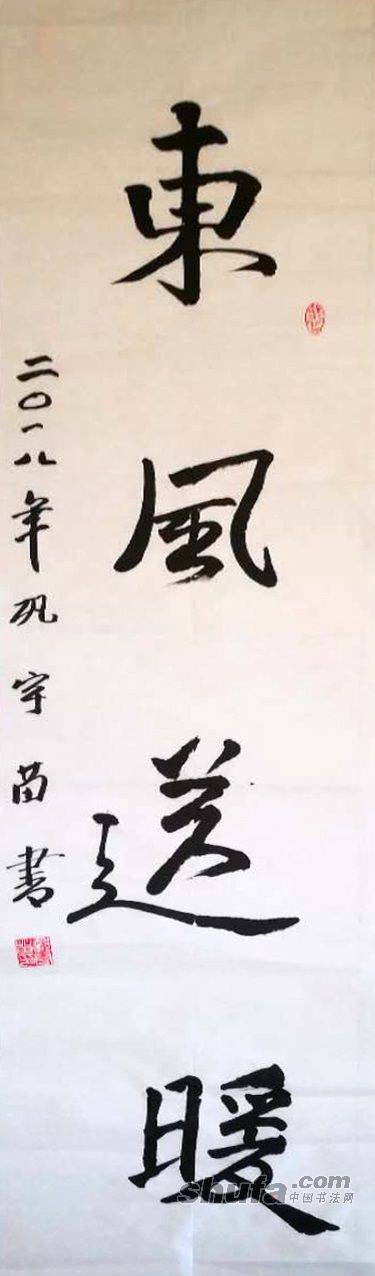 東風送暖
二〇一八年巩宇苗書
shufa.com
中国书法网